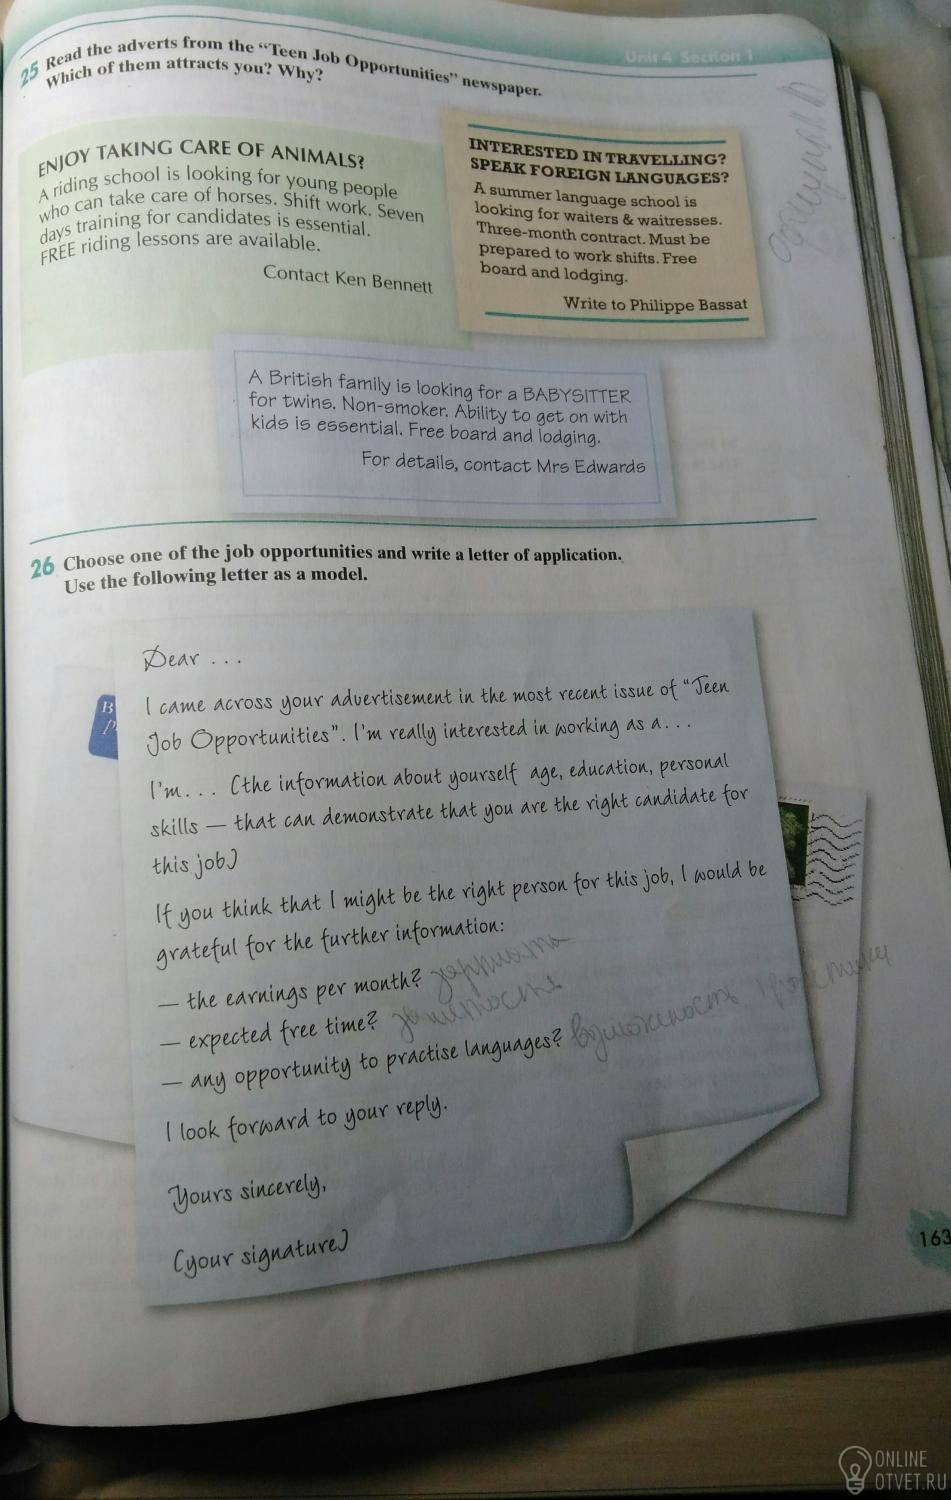 Unit 4 Section 1
25 Read the adverts from the “Teen Job Opportunities” newspaper.
Which of them attracts you? Why?
ENJOY TAKING CARE OF ANIMALS?
A riding school is looking for young people
who can take care of horses. Shift work. Seven
days training for candidates is essential.
FREE riding lessons are available.
Contact Ken Bennett
INTERESTED IN TRAVELLING?
SPEAK FOREIGN LANGUAGES?
A summer language school is
looking for waiters & waitresses.
Three-month contract. Must be
prepared to work shifts. Free
board and lodging.
Write to Philippe Bassat
A British family is looking for a BABYSITTER
for twins. Non-smoker. Ability to get on with
kids is essential. Free board and lodging.
For details, contact Mrs Edwards
26 Choose one of the job opportunities and write a letter of application.
Use the following letter as a model.
B
P
Dear ...
I came across your advertisement in the most recent issue of “Teen
Job Opportunities”. I'm really interested in working as a...
I'm... (the information about yourself age, education, personal
skills — that can demonstrate that you are the right candidate for
this job)
If you think that I might be the right person for this job, I would be
grateful for the further information:
— the earnings per month? зарплата
— expected free time?
— any opportunity to practise languages? возможность практики
I look forward to your reply.
Yours sincerely,
(your signature)
163
ONLINE
OTVET.RU